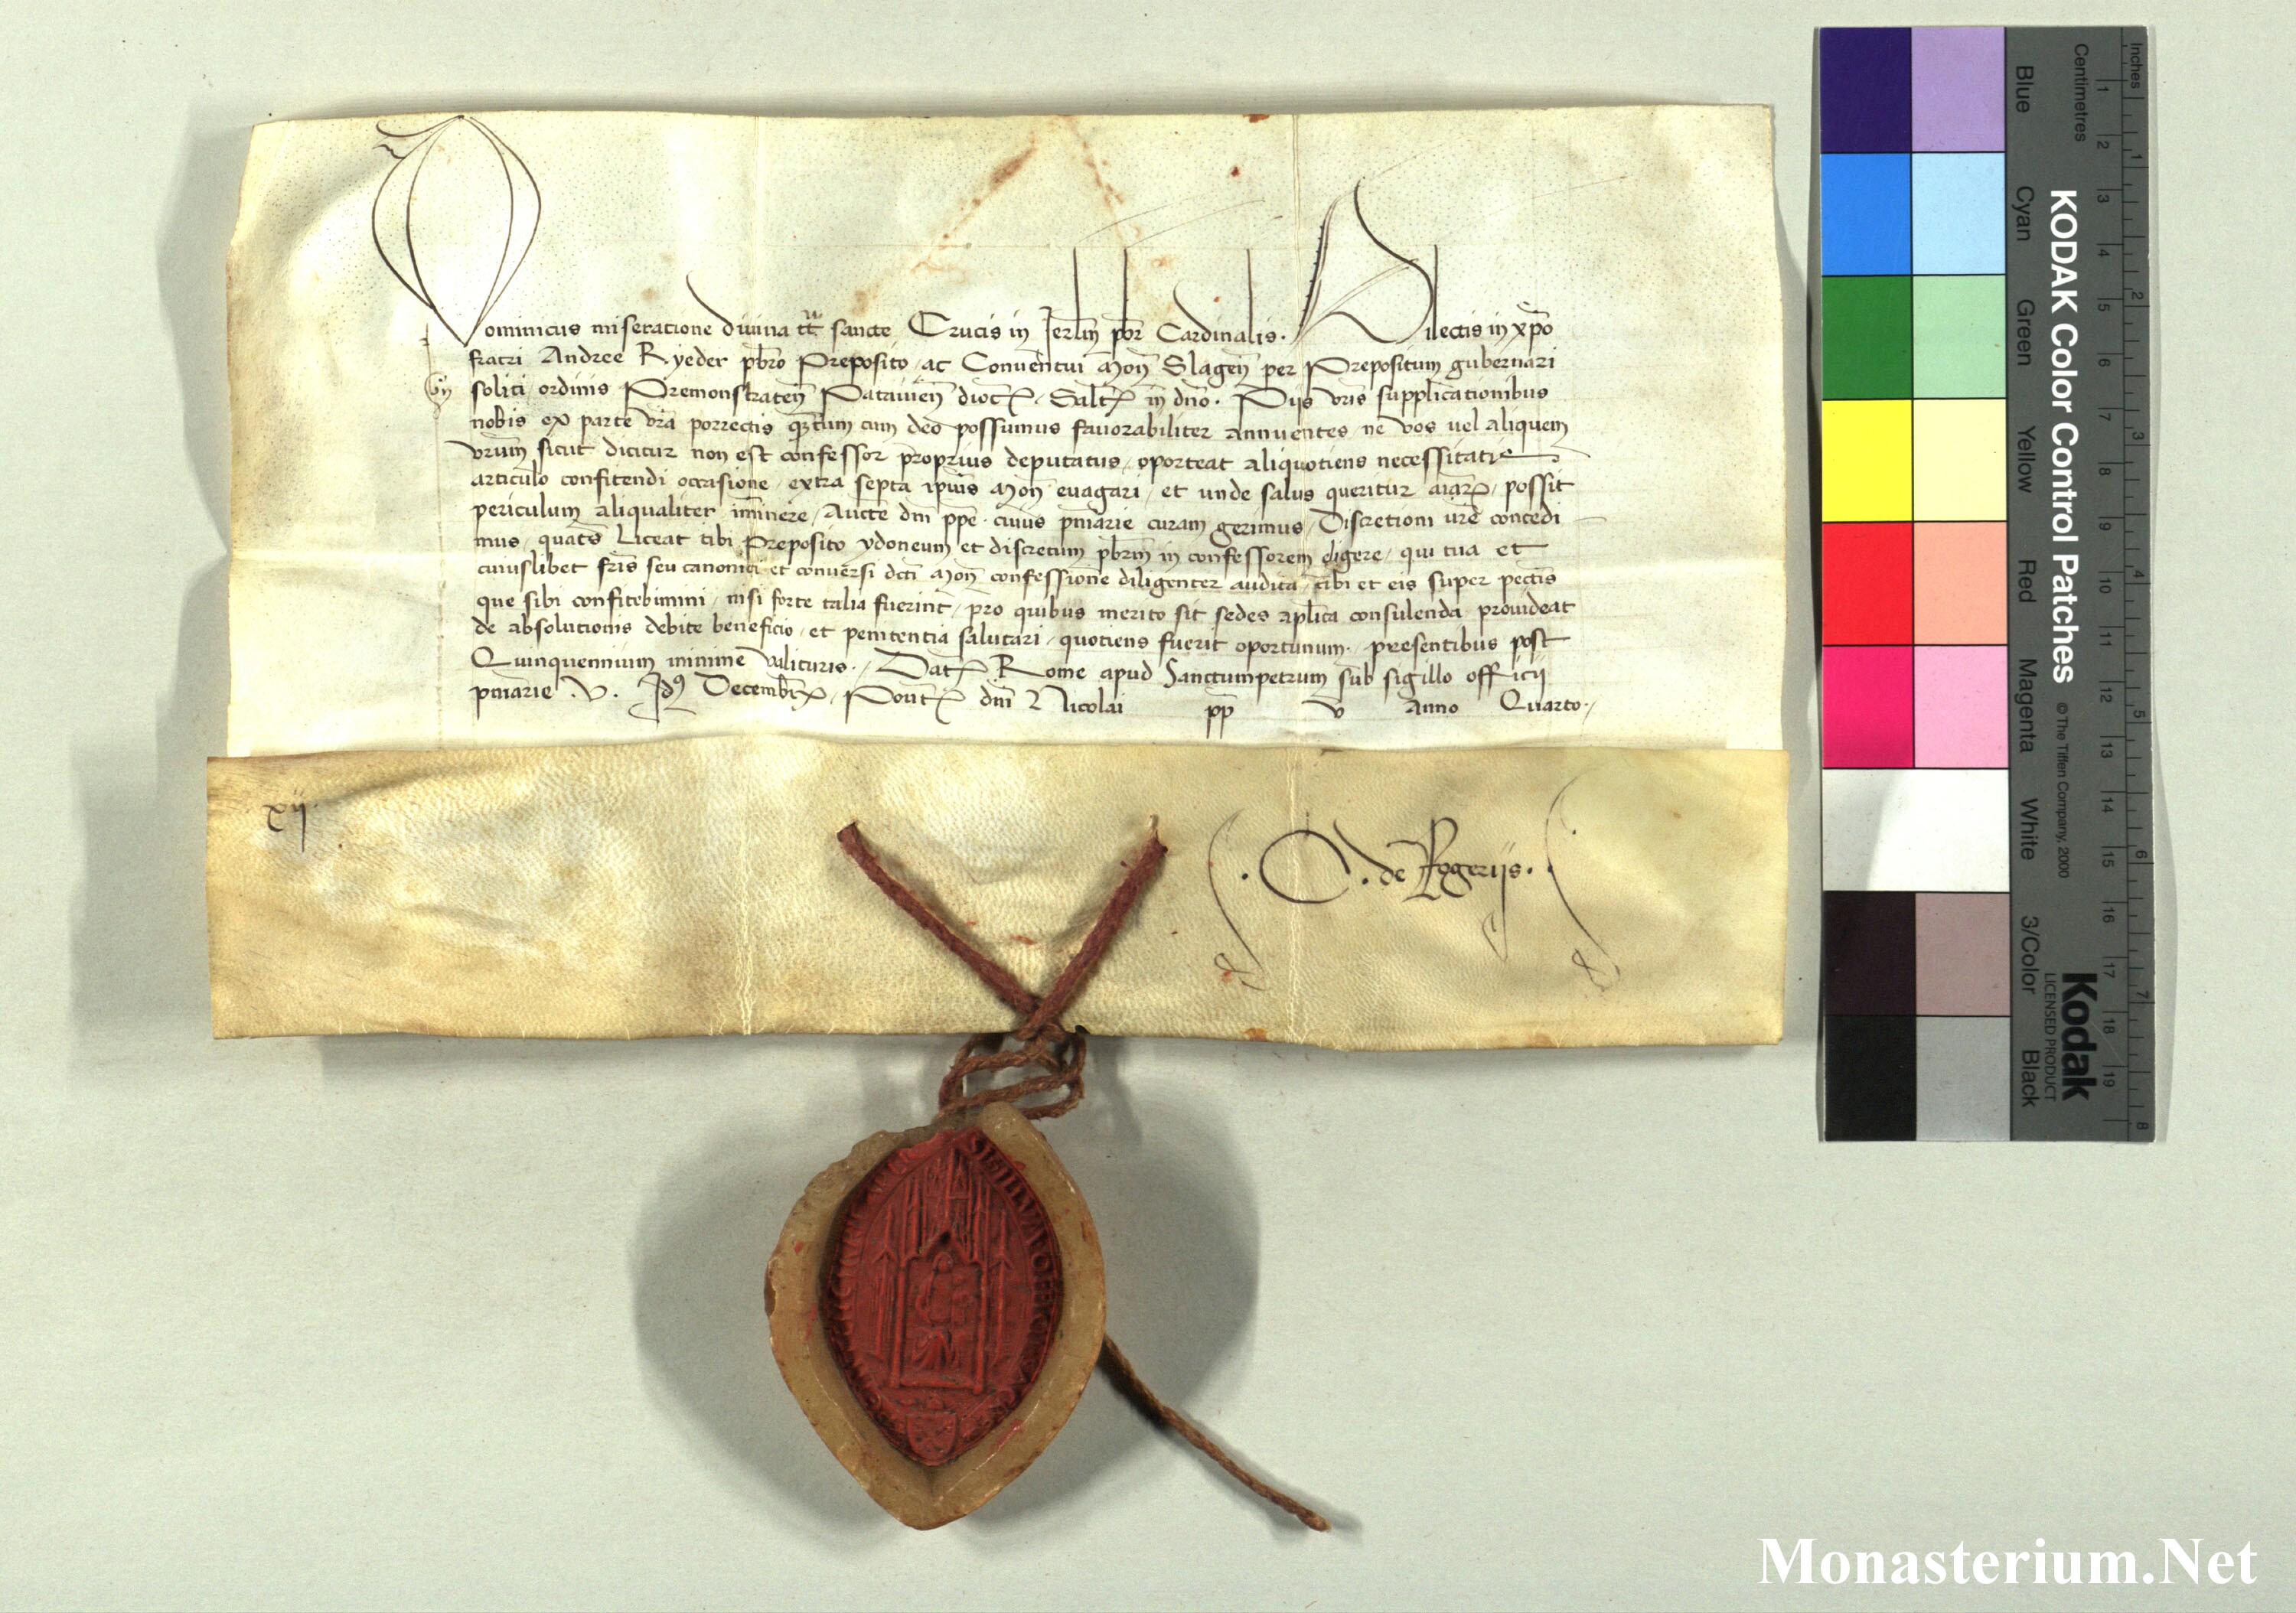 Dominicus miseratione divina tt sancte Crucis in Jerlm pbr Cardinalis. Dilectis in xpo
fratri Andree Ryeder pbro Preposito ac Conventui Mon Slagen per Prepositum gubernari
soliti ordinis Premonstraten Patavien dioc Salt in dno. Piis vris supplicationibus
nobis ex parte vra porrectis quantum cum deo possumus favorabiliter annuentes ne vos vel aliquem
vrum sicut dicitur non est confessor proprius deputatus oporteat aliquotiens necessitatis
articulo confitendi occasione extra septa ipius Mon evagari et unde salus queritur aiar possit
periculum aliqualiter iminere Aucte dni ppe cuius pniarie curam gerimus Discretioni vre concedi
mus quats Liceat tibi Preposito ydoneum et discretum pbrm in confessorem eligere qui tua et
cuiuslibet fris seu canonici et conversi dcti Mon confessione diligenter audita tibi et eis super pectis
que sibi confitebimini nisi forte talia fuerint pro quibus merito sit sedes aplica consulenda provideat
de absolutionis debite beneficio et penitentia salutari quotiens fuerit oportunum presentibus post
Quinquennium minime valituris. Dat Rome apud Sanctumpetrum sub sigillo officij
pniarie .v. Id9 Decembr Pont dni Nicolai pp v Anno Quarto.
xij
.C. de Rogerijs.
Inches
Centimetres
1 2 3 4 5 6 7 8 9 10 11 12 13 14 15 16 17 18 19
1 2 3 4 5 6 7 8
Blue Cyan Green Yellow Red Magenta White 3/Color Black
KODAK Color Control Patches
© The Tiffen Company, 2000
Kodak
LICENSED PRODUCT
Monasterium.Net